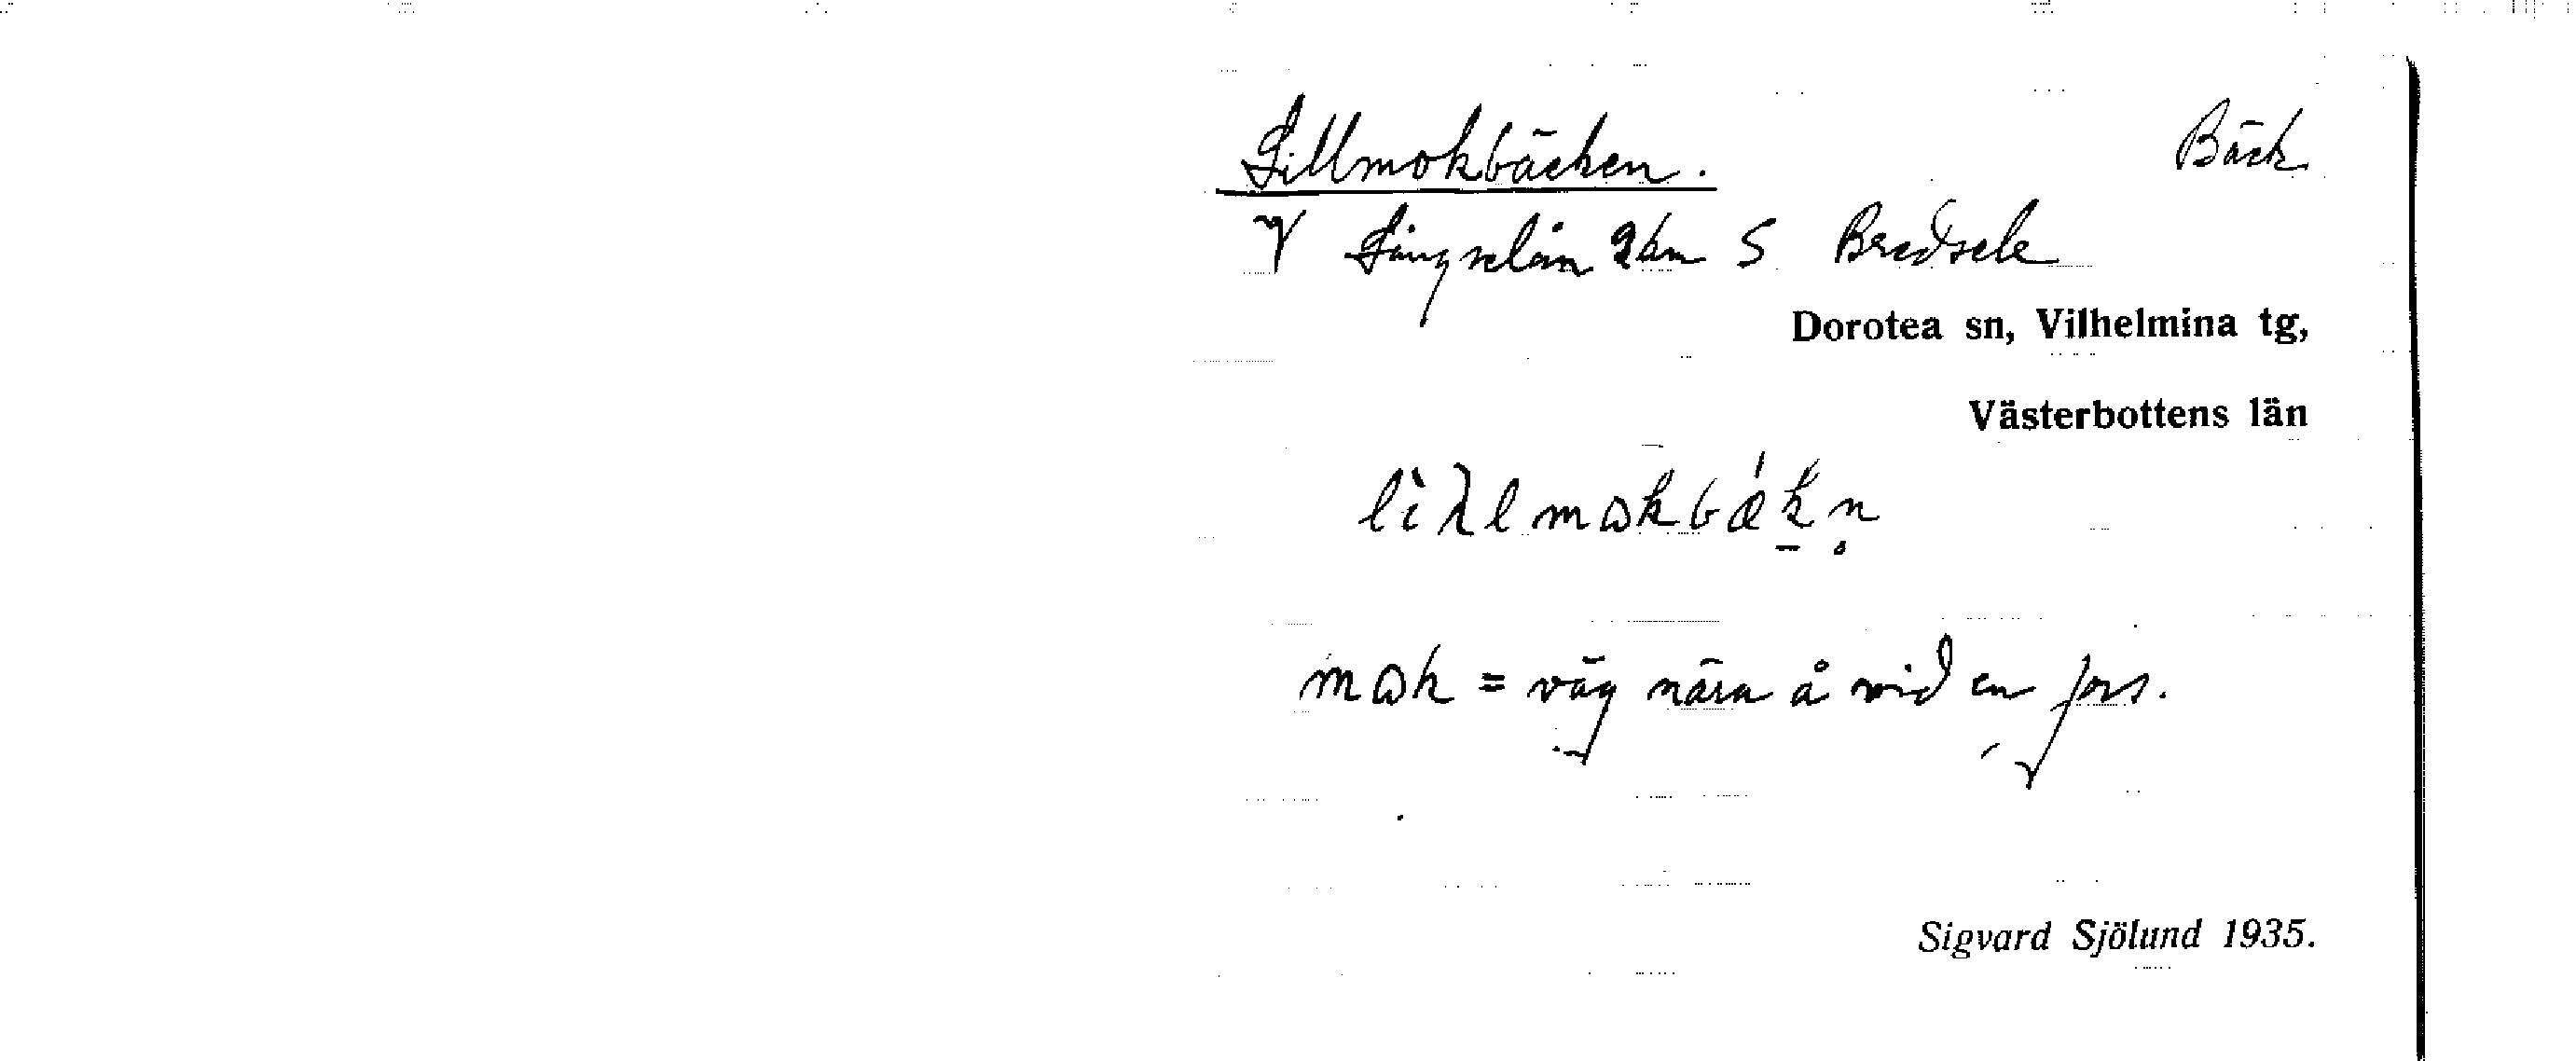 Lillmokbäcken. Bäck
V Långselån 2 km S Bredsele
Dorotea sn, Vilhelmina tg,
Västerbottens län
mɷk = väg nära å vid en fors.
Sigvard Sjölund 1935.